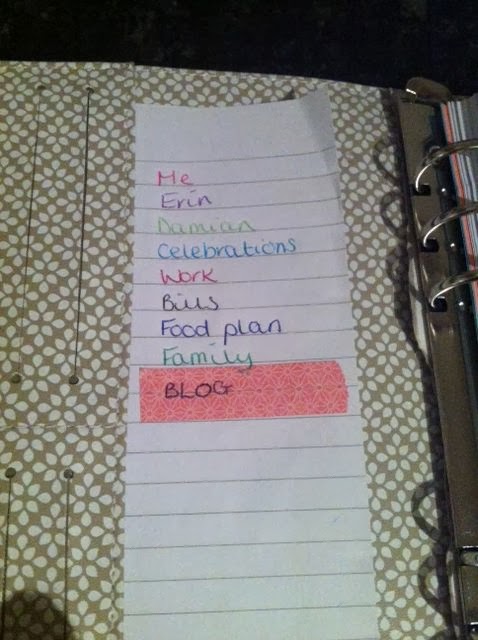 Me
Erin
Damian
Celebrations
Work
Bills
Food plan
Family
BLOG